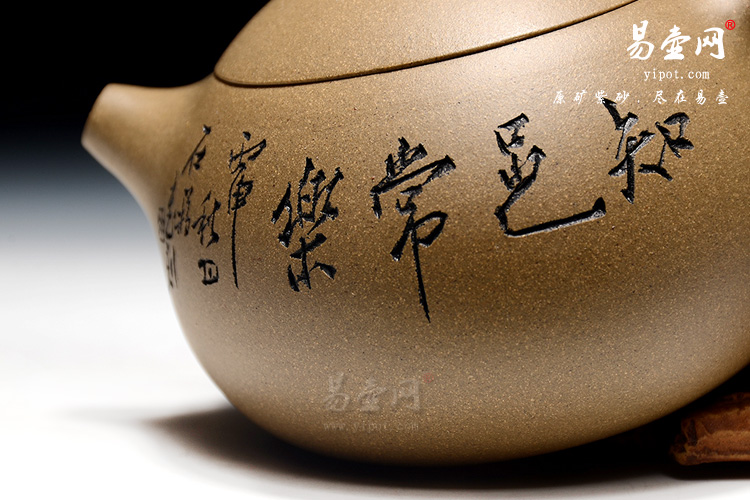 易壶网®
yipot.com
原矿紫砂,尽在易壶
知足常樂
秋日
石
易壶网
www.yipot.com